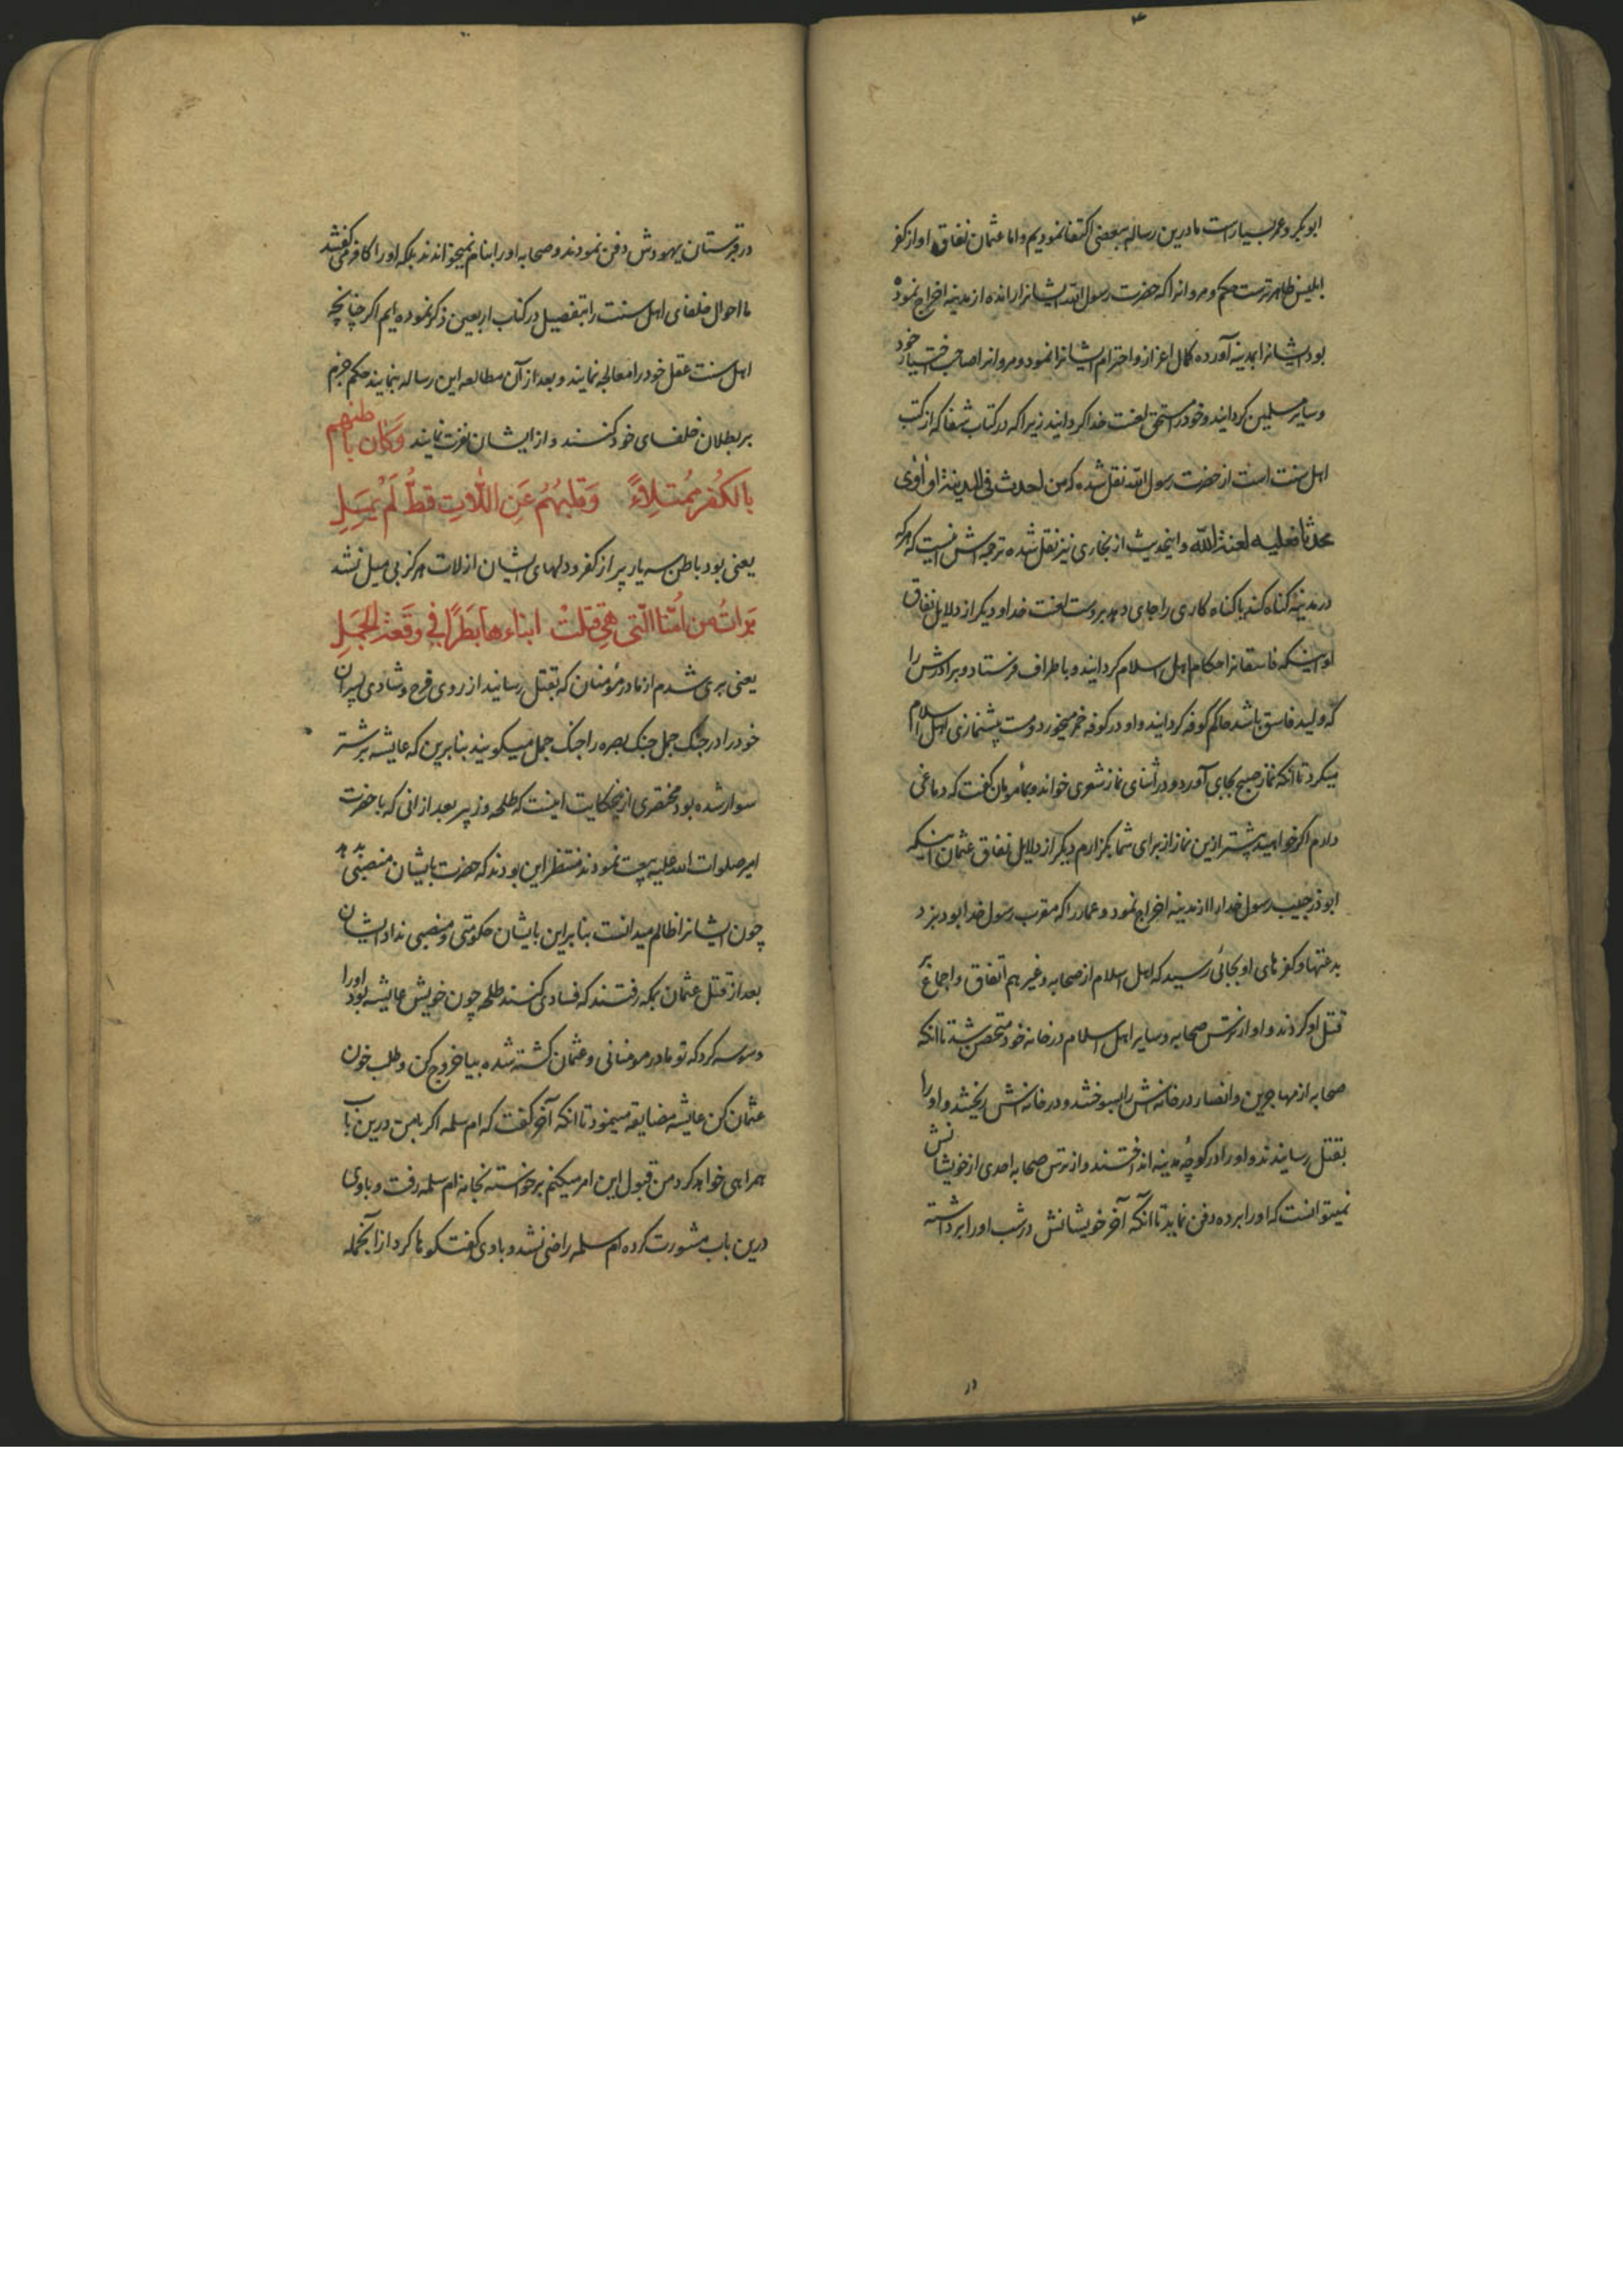 ابوبکر و عمر بسیار است ما درین رساله ببعضی اکتفا نمودیم و اما عثمان نفاق او از کفر
ابلیس ظاهرترست حکم و مروانرا که حضرت رسول الله ایشانرا رانده از مدینه اخراج نموده
بود ایشانرا بمدینه آورده کمال اعزاز و احترام ایشانرا نمود و مروانرا صاحب اختیار خود
و سایر مسلمین کردانید و خود را مستحق لعنت خدا کردانید زیرا که در کتاب شفا که از کتب
اهل سنت است از حضرت رسول الله نقل شده که من احدث فی المدینة او اوٰی
محدثا فعلیه لعنة الله و اینحدیث از بخاری نیز نقل شده ترجمه اش اینست که هرکه
در مدینه کناه کند یا کناه کاری را جای دهد بروست لعنت خدا و دیکر از دلایل نفاق
او اینکه فاسقانرا حکام اهل اسلام کردانید و باطراف فرستاد و برادرش را
که ولید فاسق باشد حاکم کوفه کردانید و او در کوفه خمر میخورد و مست پیشنمازی اهل اسلام
میکرد تا آنکه نماز صبح بجای آورد و در اثنای نماز شعری خواند و بمأمومان کفت که دماغی
دارم اکر خواهید پیشتر ازین نماز از برای شما بکزارم دیکر از دلایل نفاق عثمان اینکه
ابوذر حبیب رسول خدا را از مدینه اخراج نمود و عمار را که مقرب رسول خدا بود بزد
بدعتها و کفرهای او بجائی رسید که اهل اسلام از صحابه و غیرهم اتفاق و اجماع بر
قتل او کردند و او از ترس صحابه و سایر اهل اسلام در خانه خود متحصن شد تا آنکه
صحابه از مهاجرین و انصار در خانه‌اش را بسوختند و در خانه‌اش ریختند و او را
بقتل رسانیدند و او را در کوچهٔ مدینه انداختند و از ترس صحابه احدی از خویشانش
نمیتوانست که او را برده دفن نماید تا آنکه آخر خویشانش در شب او را برداشته
در
در قبرستان یهودش دفن نمودند و صحابه او را بنام نمیخواندند بلکه او را کافر می کفتند
ما احوال خلفای اهل سنت را بتفصیل در کتاب اربعین ذکر نموده ایم اکر چنانچه
اهل سنت عقل خود را معالجه نمایند و بعد از آن مطالعه این رساله بنمایند حکم جزم
بر بطلان خلفای خود کنند و از ایشان نفرت نمایند وَکَان باطنهم
بالکُفر مُمْتَلِاءً وَقَلبهُمُ عَنِ اللّاتِ قطُّ لَمْ یَمِلِ
یعنی بود باطن سه یار پر از کفر و دلهای ایشان از لات هرکز بی میل نشد
بَرِاتُ من اُمّنا الّتی هِیَ قتلتْ ابناءها بَطَرًا فی وقعَة الجَمَلِ
یعنی بری شدم از مادر مؤمنان که بقتل رسانید از روی فرح و شادی پسران
خود را در جنک جمل جنک بصره را جنک جمل میکویند بنابرین که عایشه بر شتر
سوار شده بود مختصری از ینحکایت اینست که طلحه و زبیر بعد از انی که با حضرت
امیر صلوات الله علیه بیعت نمودند منتظر این بودند که حضرت بایشان منصبی بدهد
چون ایشانرا ظالم میدانست بنابراین بایشان حکومتی و منصبی نداد ایشان
بعد از قتل عثمان بمکه رفتند که فسادی کنند طلحه چون خویش عایشه بود او را
وسوسه کرد که تو مادر مومنانی و عثمان کشته شده بیا خروج کن و طلب خون
عثمان کن عایشه مضایقه مینمود تا آنکه آخر کفت که ام سلمه اکر با من درین باب
همراهی خواهد کرد من قبول این امر میکنم برخواسته بخانه ام سلمه رفت و باوی
درین باب مشورت کرده ام سلمه راضی نشد و باوی کفت‌کوها کرد از آنجمله